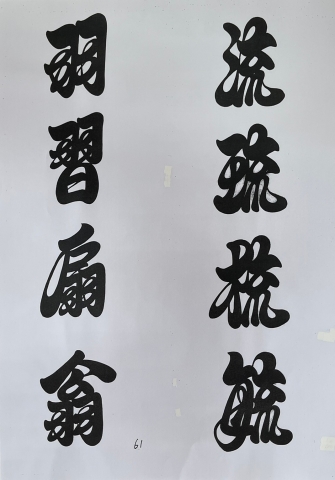 流琉梳毓
羽習扇翁
61